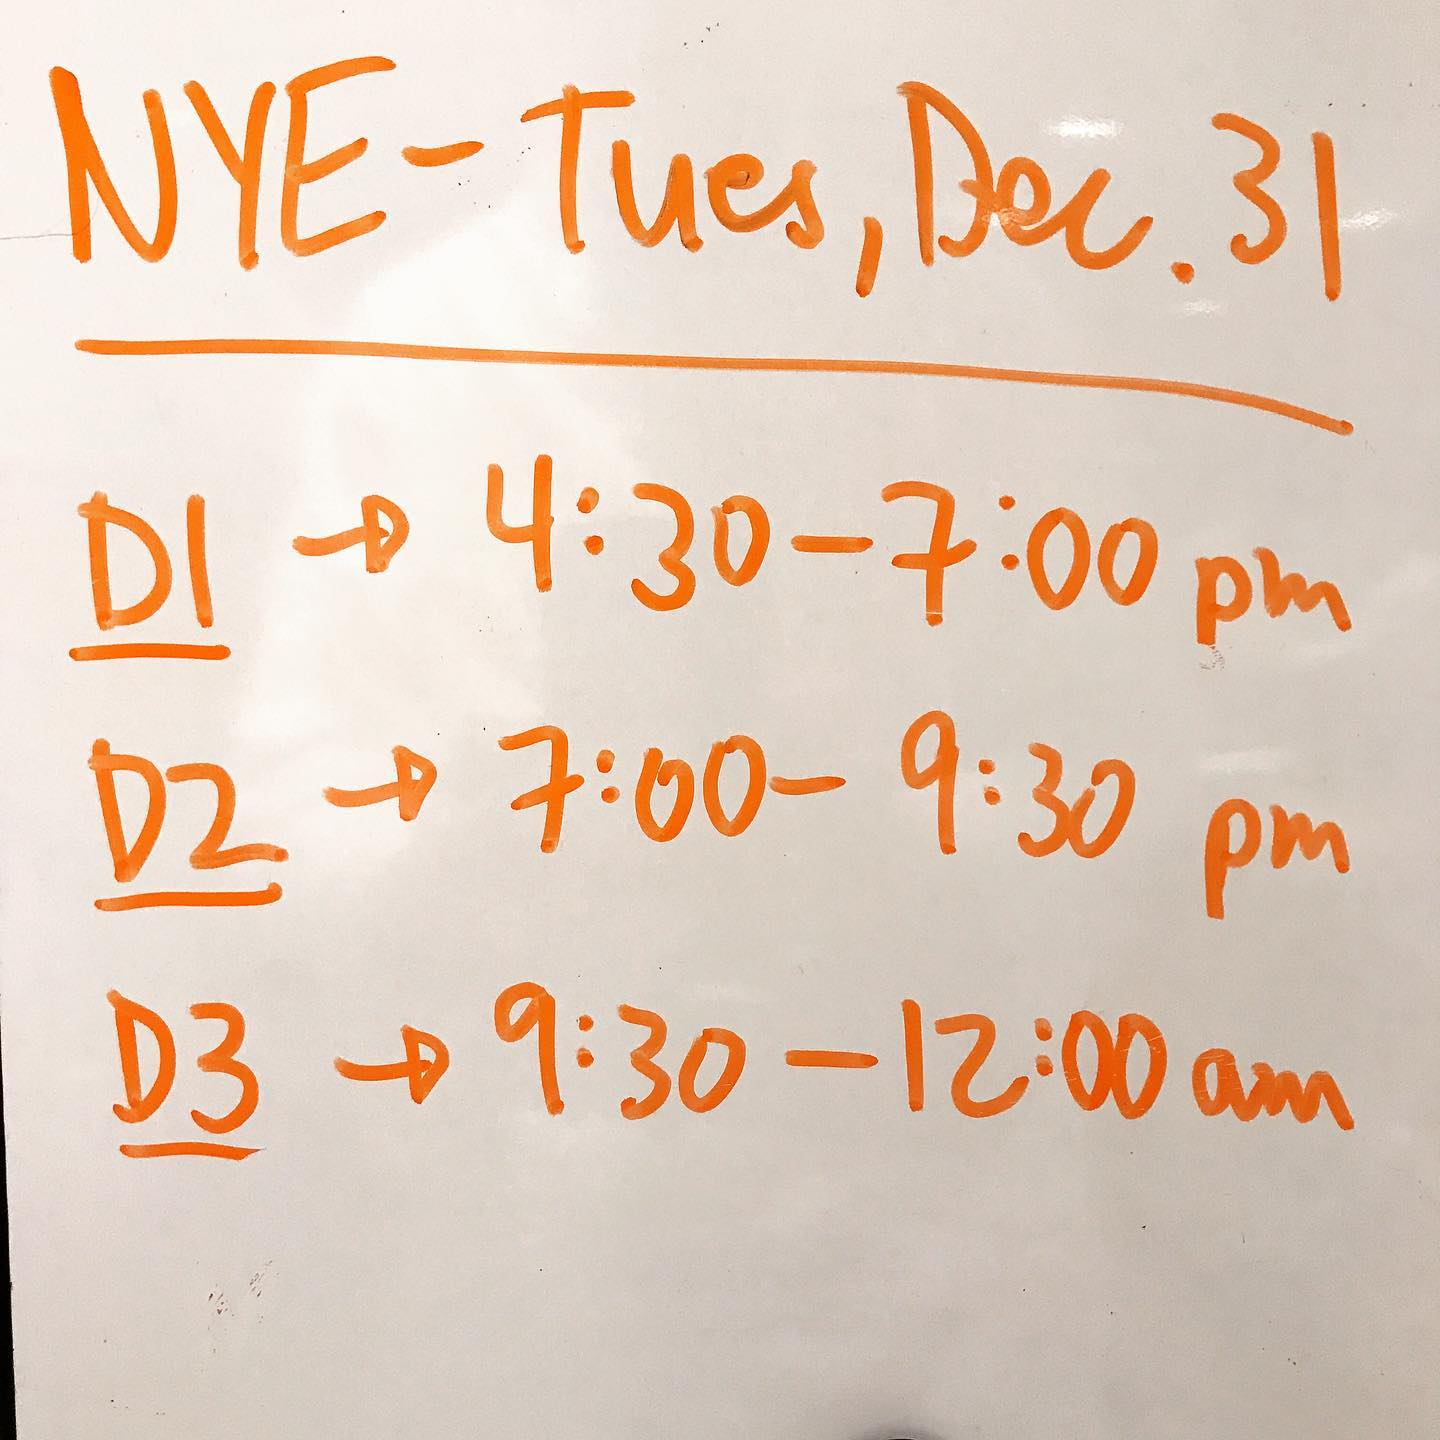 NYE - Tues, Dec. 31
D1 → 4:30 - 7:00 pm
D2 → 7:00 - 9:30 pm
D3 → 9:30 - 12:00 am